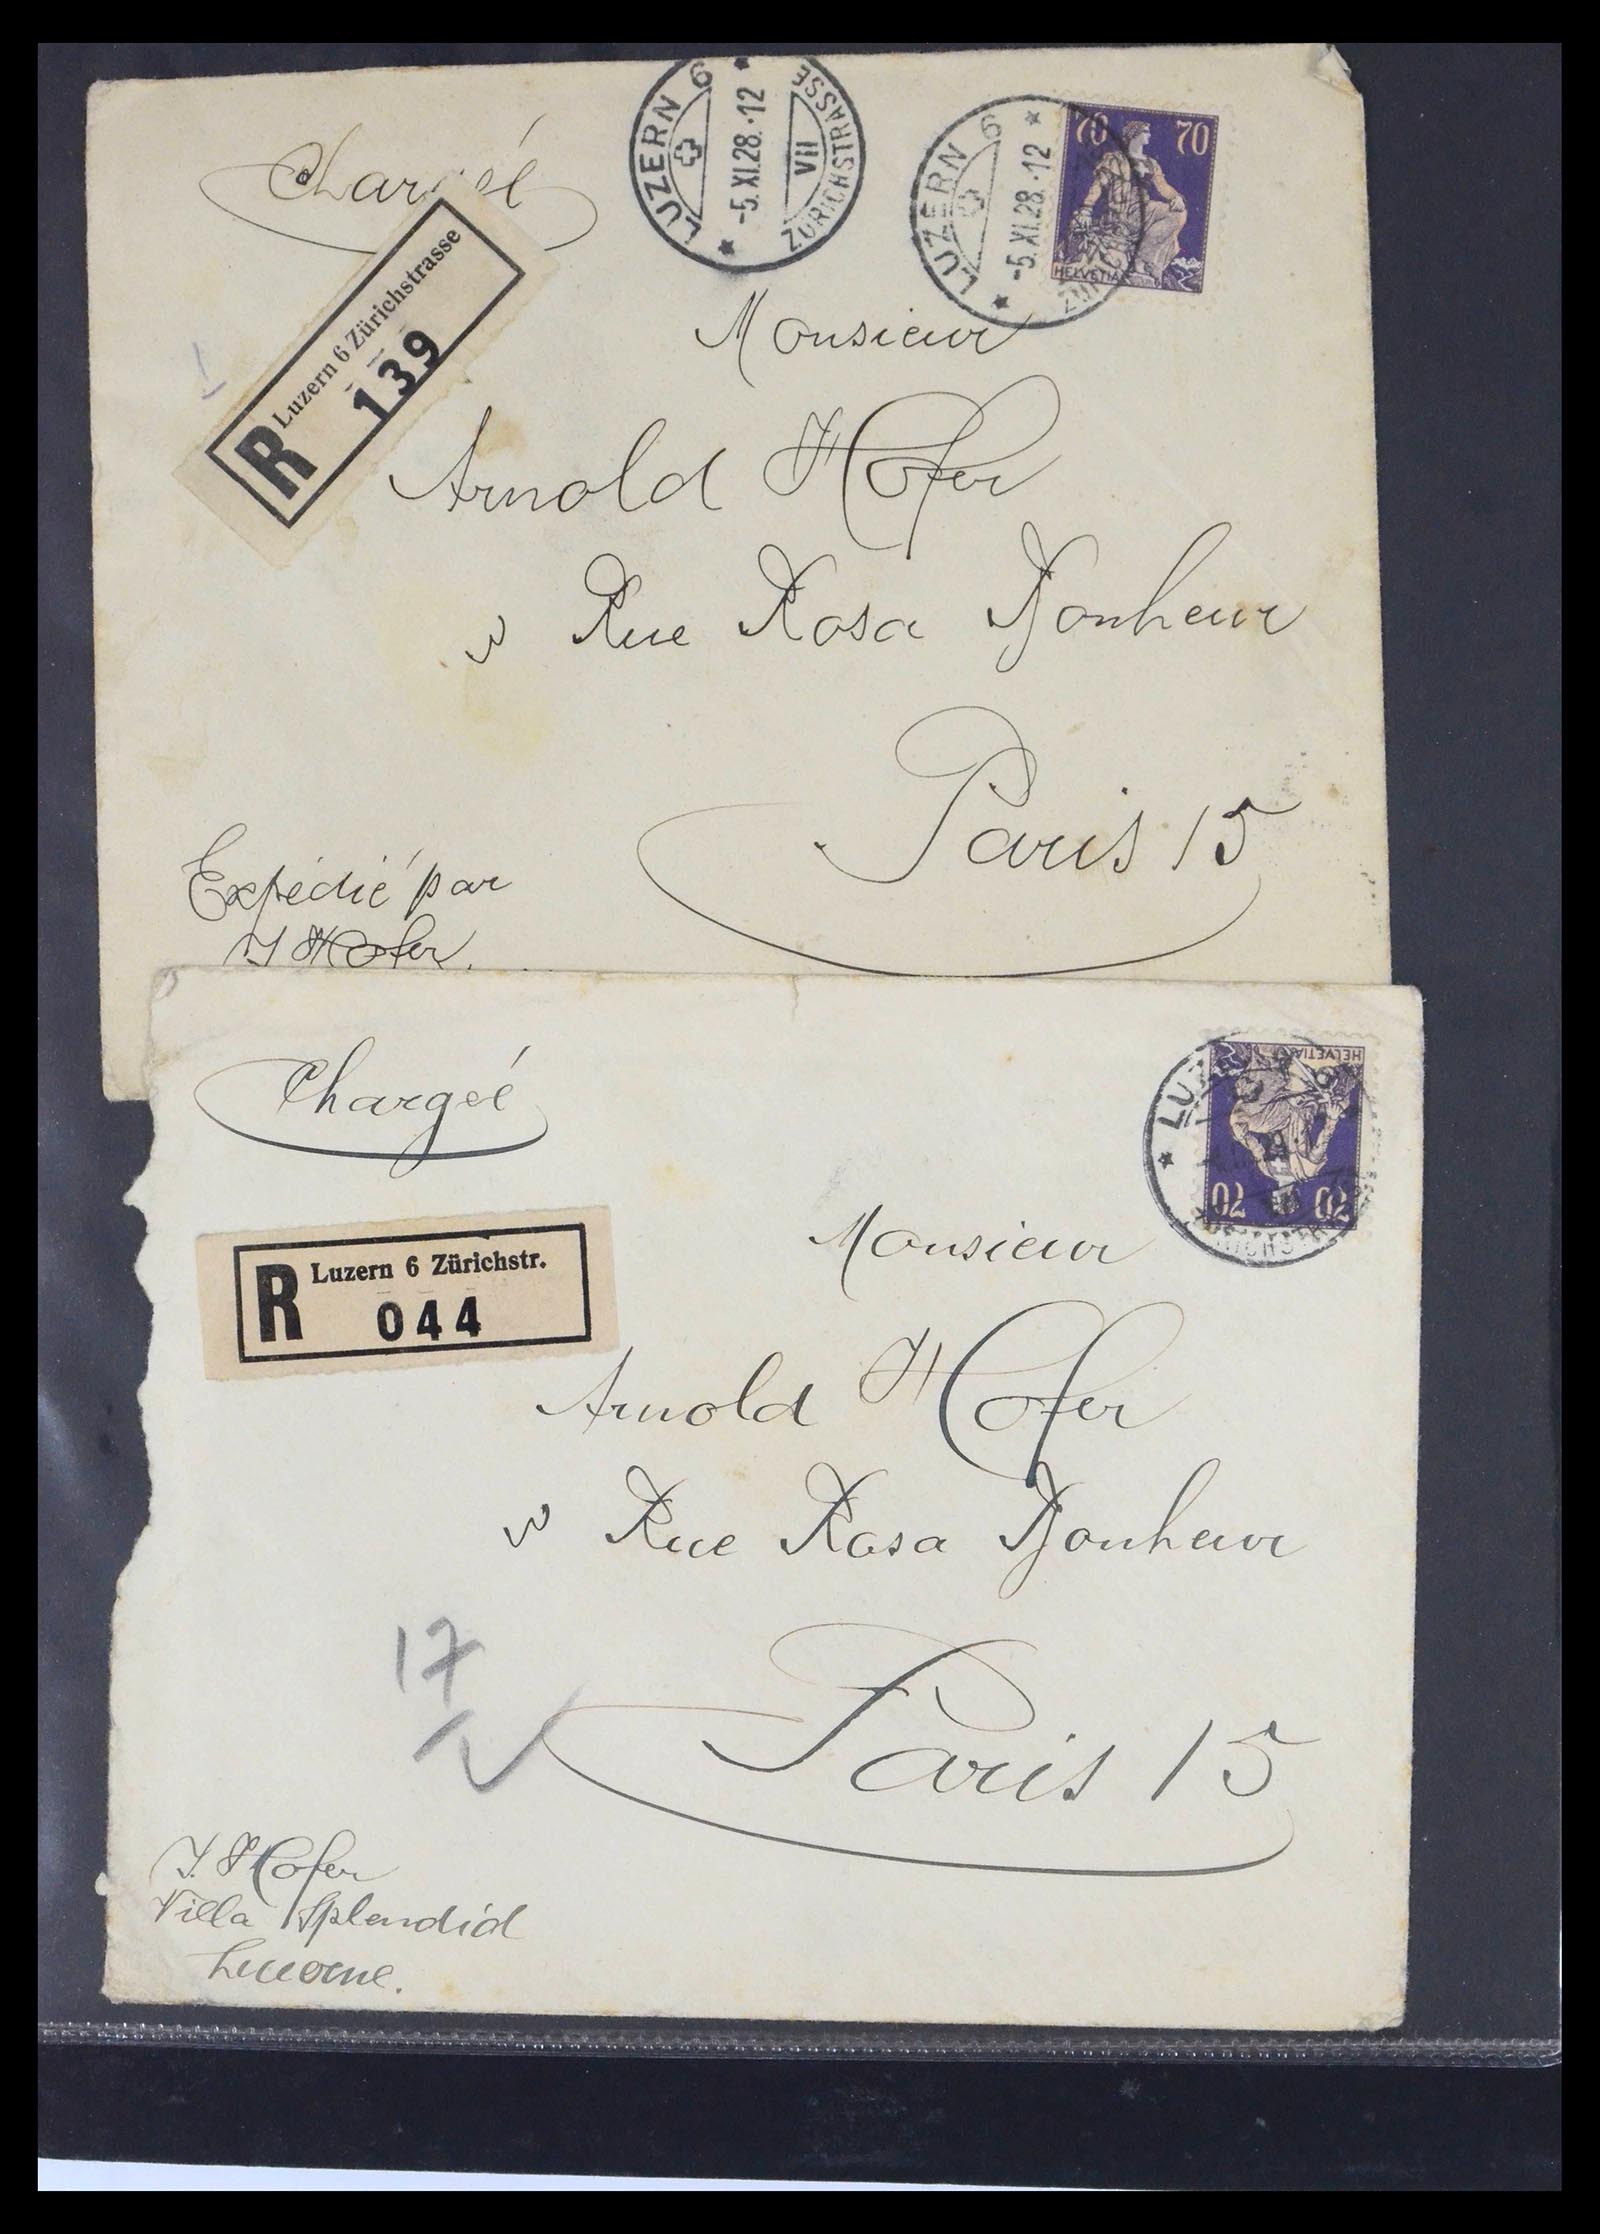 Chargéé
LUZERN 6
-5.XI.28.-12
VII
ZÜRICHSTRASSE
LUZERN 6
-5.XI.28.-12
ZÜR
70 70
HELVETIA
R Luzern 6 Zürichstrasse
139
Monsieur
Arnold Hofer
Rue Rosa Bonheur
Paris 15
Expédié par
J Hofer.
Chargéé
LUZ
HELVETIA
70 70
R Luzern 6 Zürichstr.
044
Monsieur
Arnold Hofer
Rue Rosa Bonheur
17
Paris 15
J. Hofer
Villa Splendid
Lucerne.